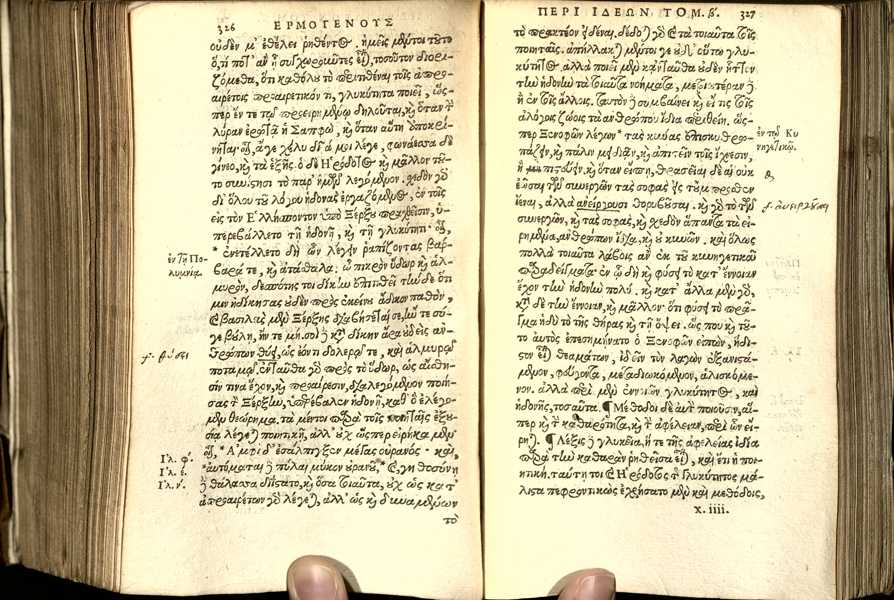 326 ΕΡΜΟΓΕΝΟΥΣ
οὐδὲν μ' ἐθέλει ῥηθέντος. ἡμεῖς μέντοι τοῦτο
ὅ,τι ποτ' ἂν ᾖ συγχωροῦντες εἶναι, τοσοῦτον διορι-
ζόμεθα, ὅτι καθόλου τὸ περιτιθέναι τοῖς ἀπρο-
αιρέτοις προαιρετικόν τι, γλυκύτητα ποιεῖ, ὥς-
περ ἔν τε τῷ προειρημένῳ δηλοῦται, καὶ ὅταν τὴν
λύραν ἐρωτᾷ ἡ Σαπφώ, καὶ ὅταν αὐτὴ ἀποκρί-
νηται· οἷον, ἄγε χέλυ δῖά μοι λέγε, φωνάεσσα δὲ
γίνεο, καὶ τὰ ἑξῆς. ὁ δὲ Ἡρόδοτος καὶ μᾶλλον τοῦ-
το συνίστησι τὸ παρ' ἡμῶν λεγόμενον. σχεδὸν γὰρ
δι' ὅλου τοῦ λόγου ἡδονὰς ἐργαζόμενος, ἐν τοῖς
εἰς τὸν Ἑλλήσποντον ὑπὸ Ξέρξου πραχθεῖσιν, ὑ-
περεβάλλετο τῇ ἡδονῇ, καὶ τῇ γλυκύτητι· οἷον,
ἐν τῇ Πο-
λυμνίᾳ.
" ἐνετέλλετο δὴ ὦν λέγειν ῥαπίζοντας βάρ-
βαρά τε, καὶ ἀτάσθαλα. ὦ πικρὸν ὕδωρ καὶ ἁλ-
μυρόν, δεσπότης τοι δίκην ἐπιτιθεῖ τήνδε ὅτι
μιν ἠδίκησας οὐδὲν πρὸς ἐκείνου ἄδικον παθόν,
καὶ βασιλεὺς μὲν Ξέρξης διαβήσεταί σε, ἤν τε σύ-
γε βούλῃ, ἤν τε μή. σοὶ δὲ κατὰ δίκην ἄρα οὐδεὶς ἀν-
γρ. θύσει
θρώπων θύει, ὡς ἐόντι δολερῷ τε, καὶ ἁλμυρῷ
ποταμῷ. ἐνταῦθα γὰρ πρὸς τὸ ὕδωρ, ὡς αἴσθη-
σίν τινα ἔχον, καὶ προαίρεσιν, διαλεγόμενον ποιή-
σας τὸν Ξέρξην, ὑπερέβαλεν ἡδονῇ, καθ' ὃ ἐλέγο-
μεν θεώρημα. τὰ μέντοι παρὰ τοῖς ποιηταῖς ἐξου-
σίᾳ λέγεται ποιητικῇ, ἀλλ' οὐχ ὥσπερ εἰρήκαμεν
Ἰλ. φ'.
οἷον, " Ἀμφὶ δ' ἐσάλπιγξεν μέγας οὐρανός· καὶ,
Ἰλ. ε.
" αὐτόμαται δὲ πύλαι μύκον οὐρανοῦ, " καὶ, γηθοσύνῃ
Ἰλ. ν'.
δὲ θάλασσα διΐστατο, καὶ ὅσα τοιαῦτα, οὐχ ὡς κατ'
ἀπροαιρέτων λέγεται, ἀλλ' ὡς καὶ δυναμένων
τὸ
ΠΕΡΙ ΙΔΕΩΝ ΤΟΜ. β'. 327
τὸ πρακτέον εἰδέναι. δέδοται γὰρ τὰ τοιαῦτα τοῖς
ποιηταῖς. ἀπήλλακται μέντοι γε οὐδ' οὕτω γλυ-
κύτητος. ἀλλὰ ποιεῖ μὲν κἀνταῦθα οὐδὲν ἧττον
τὴν ἡδονὴν τὰ τοιαῦτα νοήματα, μετριωτέραν δὲ
ἢ ἐν τοῖς ἄλλοις. ταὐτὸν δὲ συμβαίνει καὶ εἴ τις τοῖς
ἀλόγοις ζώοις τὰ ἀνθρώπου ἴδια περιθείη. ὥσ-
περ Ξενοφῶν λέγων " τὰς κύνας ἐπισκυθρω-
ἐν τῷ Κυ
νηγετικῷ.
πάζειν, καὶ πάλιν μειδιᾶν, καὶ ἀπιστεῖν τοῖς ἴχνεσιν,
ἢ πιστεύειν, καὶ ὅταν εἴπῃ, θρασεῖαι δὲ αἳ οὐκ
ἐῶσαι τῶν συνεργῶν τὰς σοφὰς εἰς τὸ πρόσθεν
ἰέναι, ἀλλὰ ἀνείργουσι θορυβοῦσαι. καὶ γὰρ τὸ τῶν
συνεργῶν, καὶ τὰς σοφάς, καὶ σχεδὸν ἅπαντα τὰ εἰ-
ρημένα, ἀνθρώπων ἴδια, καὶ οὐ κυνῶν. καὶ ὅλως
πολλὰ τοιαῦτα λάβοις ἂν ἐκ τοῦ κυνηγετικοῦ
παραδείγματα ἐν ᾧ δὴ καὶ φύσει τὸ κατ' ἔννοιαν
ἔχον τὴν ἡδονὴν πολύ. καὶ κατ' ἄλλα μὲν γὰρ,
κατὰ δὲ τὴν ἔννοιαν, καὶ μᾶλλον· ὅτι φύσει τὸ πρᾶγ-
μα ἡδὺ τὸ τῆς θήρας καὶ τῇ ὄψει. ὥς που καὶ τοῦ-
το αὐτὸς ἐπεσημήνατο ὁ Ξενοφῶν εἰπὼν, ἥδι-
στον εἶναι θεαμάτων, ἰδεῖν τὸν λαγὼν ἐξανιστά-
μενον, φεύγοντα, μεταδιωκόμενον, ἁλισκόμε-
νον. ἀλλὰ περὶ μὲν ἐννοιῶν γλυκύτητος, καὶ
ἡδονῆς, τοσαῦτα. ¶ Μέθοδοι δὲ αὐτὴν ποιοῦσιν, αἵ-
περ καὶ τὴν καθαρότητα, καὶ τὴν ἀφέλειαν, περὶ ὧν εἴ-
ρηται. ¶ Λέξις δὲ γλυκεῖα, ἥ τε τῆς ἀφελείας ἰδία
παρὰ τὴν καθαρὰν ῥηθεῖσα εἶναι, καὶ ἔτι ἡ ποιη-
τική. ταύτῃ τοι καὶ Ἡρόδοτος τῆς γλυκύτητος μά-
λιστα πεφροντικὼς ἐχρήσατο μὲν καὶ μεθόδοις,
x. iiii.